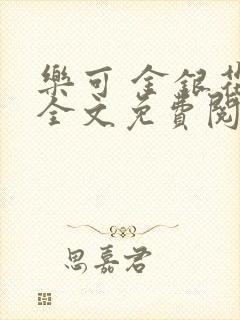 樂可 金銀花
全文免費閱
思嘉君